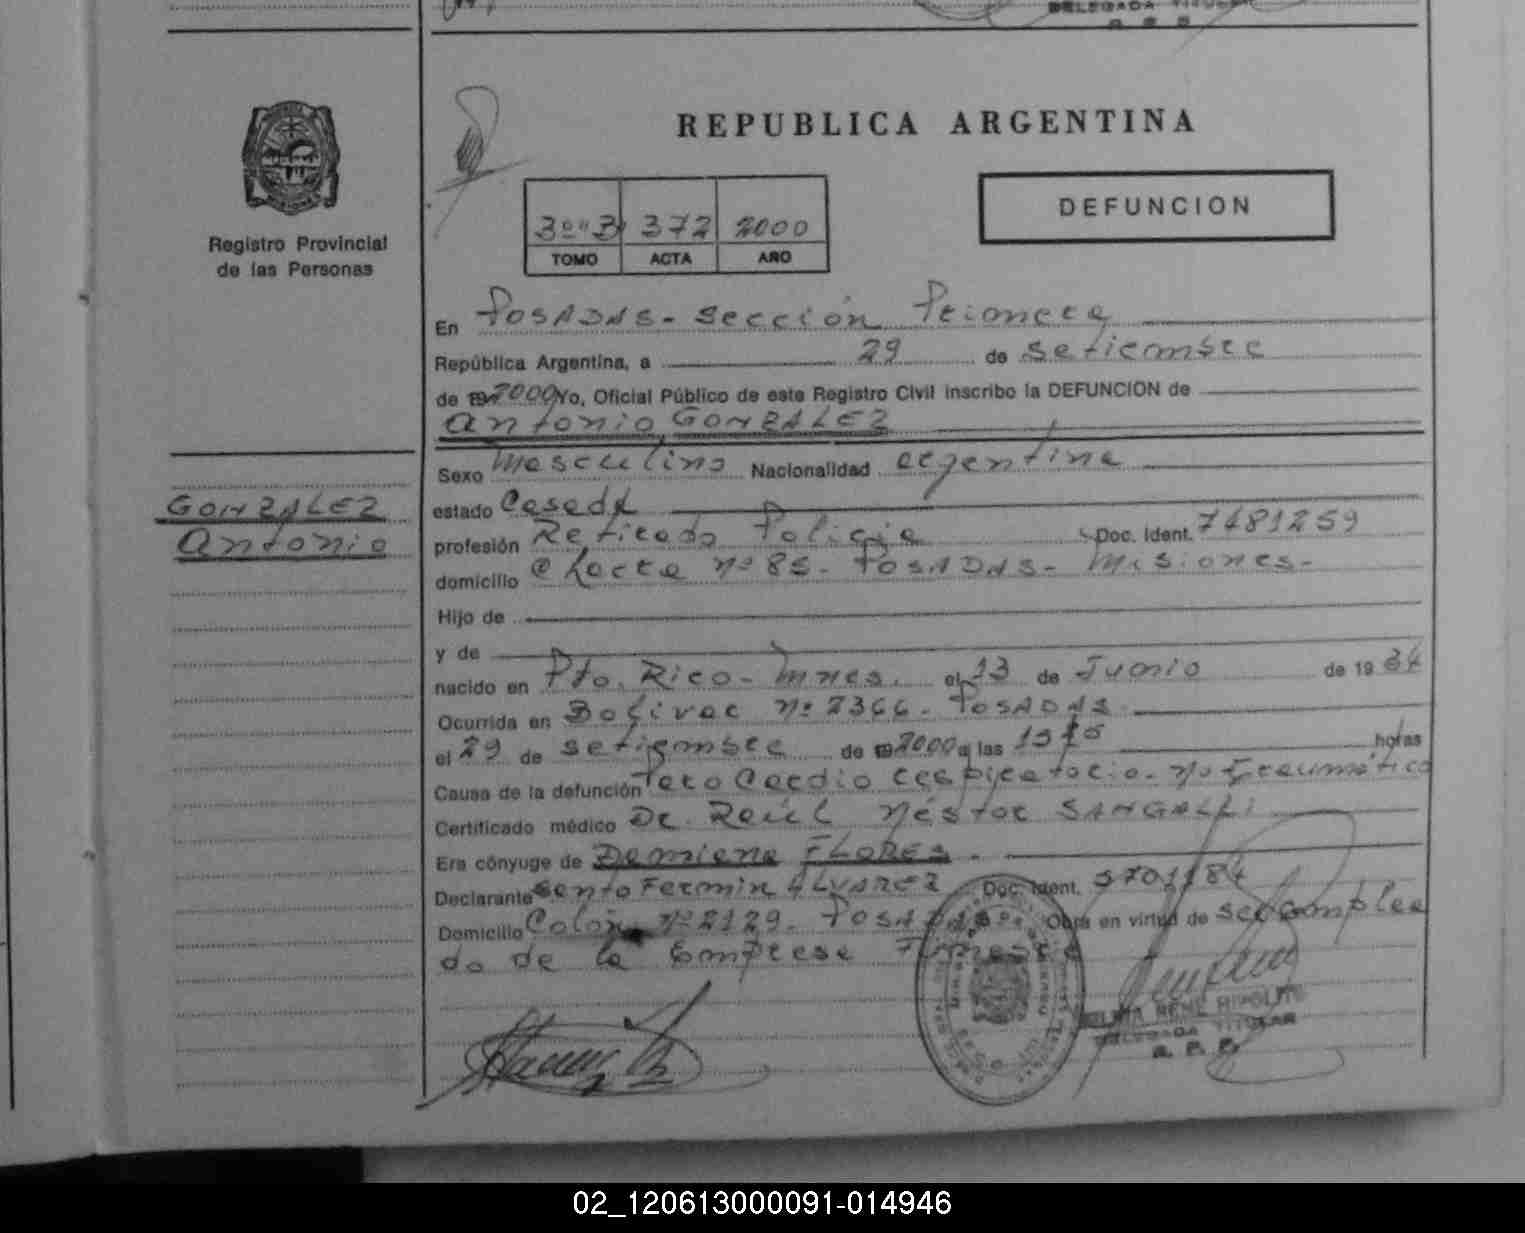 DELEGADA TITULAR
REPUBLICA ARGENTINA
Registro Provincial
de las Personas
3º"B" 372 2000
TOMO ACTA AÑO
DEFUNCION
En POSADAS - Sección Primera
República Argentina, a 29 de setiembre
de 19 2000 Yo, Oficial Público de este Registro Civil inscribo la DEFUNCION de
Antonio GONZALEZ
GONZALEZ
Antonio
Sexo Masculino Nacionalidad argentina
estado Casado
profesión Retirado Policia Doc. Ident. 7481259
domicilio Chacra nº 85 - POSADAS - Misiones -
Hijo de
y de
nacido en Pto. Rico - Mnes. el 13 de Junio de 19 34
Ocurrida en Bolivar nº 2366 - POSADAS
el 29 de setiembre de 19 2000 a las horas
Causa de la defunción Paro Cardio respiratorio - no traumático
Certificado médico Dr. Raúl Néstor SANGALLI
Era cónyuge de Damiana FLORES -
Declarante Santo Fermin ALVAREZ Doc. Ident.
Domicilio Colón nº 2129 - POSADAS Obra en virtud de ser emplea
do de la Empresa Funebre
RENE HIPOLITO
DELEGADA TITULAR
R. P. P.
02_120613000091-014946